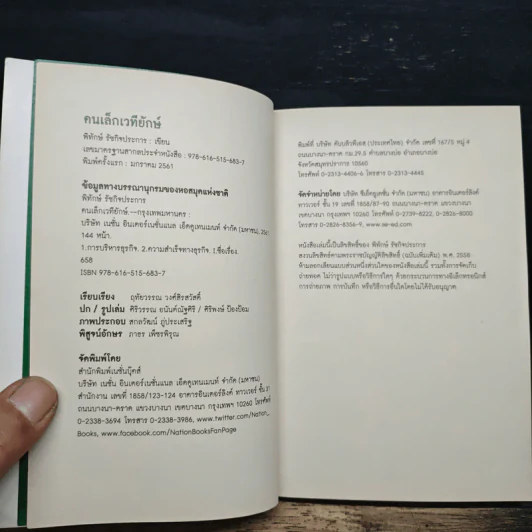 คนเล็กเวทียักษ์
พิทักษ์ รัชกิจประการ : เขียน
เลขมาตรฐานสากลประจำหนังสือ : 978-616-515-683-7
พิมพ์ครั้งแรก : มกราคม 2561
ข้อมูลทางบรรณานุกรมของหอสมุดแห่งชาติ
พิทักษ์ รัชกิจประการ
คนเล็กเวทียักษ์.--กรุงเทพมหานคร :
บริษัท เนชั่น อินเตอร์เนชั่นแนล เอ็ดดูเทนเมนท์ จำกัด (มหาชน),
144 หน้า.
1.การบริหารธุรกิจ. 2.ความสำเร็จทางธุรกิจ. I.ชื่อเรื่อง
658
ISBN 978-616-515-683-7
เรียบเรียง ฤทัยวรรณ วงศ์สิรสวัสดิ์
ปก / รูปเล่ม ศิริวรรณ อนันต์ณัฐศิริ / ศิริพงษ์ ป้องป้อม
ภาพประกอบ สกลวัฒน์ ภู่ประเสริฐ
พิสูจน์อักษร ภาธร เพ็ชรพิรุณ
จัดพิมพ์โดย
สำนักพิมพ์เนชั่นบุ๊คส์
บริษัท เนชั่น อินเตอร์เนชั่นแนล เอ็ดดูเทนเมนท์ จำกัด (มหาชน)
สำนักงาน เลขที่ 1858/123-124 อาคารอินเตอร์ลิงค์ ทาวเวอร์ ชั้น
ถนนบางนา-ตราด แขวงบางนา เขตบางนา กรุงเทพฯ 10260 โทรศัพท์
0-2338-3694 โทรสาร 0-2338-3986, www.twitter.com/Nation_
Books, www.facebook.com/NationBooksFanPage
พิมพ์ที่ บริษัท ดับบลิวพีเอส (ประเทศไทย) จำกัด เลขที่ 167/5 หมู่ 4
ถนนบางนา-ตราด กม.29.5 ตำบลบางบ่อ อำเภอบางบ่อ
จังหวัดสมุทรปราการ 10560
โทรศัพท์ 0-2313-4406-6 โทรสาร 0-2313-4445
จัดจำหน่ายโดย บริษัท ซีเอ็ดยูเคชั่น จำกัด (มหาชน) อาคารอินเตอร์ลิงค์
ทาวเวอร์ ชั้น 19 เลขที่ 1858/87-90 ถนนบางนา-ตราด แขวงบางนา
เขตบางนา กรุงเทพฯ 10260 โทรศัพท์ 0-2739-8222, 0-2826-8000
โทรสาร 0-2826-8356-9, www.se-ed.com
หนังสือเล่มนี้เป็นลิขสิทธิ์ของ พิทักษ์ รัชกิจประการ
สงวนลิขสิทธิ์ตามพระราชบัญญัติลิขสิทธิ์ (ฉบับเพิ่มเติม) พ.ศ. 2558
ห้ามลอกเลียนแบบส่วนหนึ่งส่วนใดของหนังสือเล่มนี้ รวมทั้งการจัดเก็บ
ถ่ายทอด ไม่ว่ารูปแบบหรือวิธีการใดๆ ด้วยกระบวนการทางอิเล็กทรอนิกส์
การถ่ายภาพ การบันทึก หรือวิธีการอื่นใดโดยไม่ได้รับอนุญาต